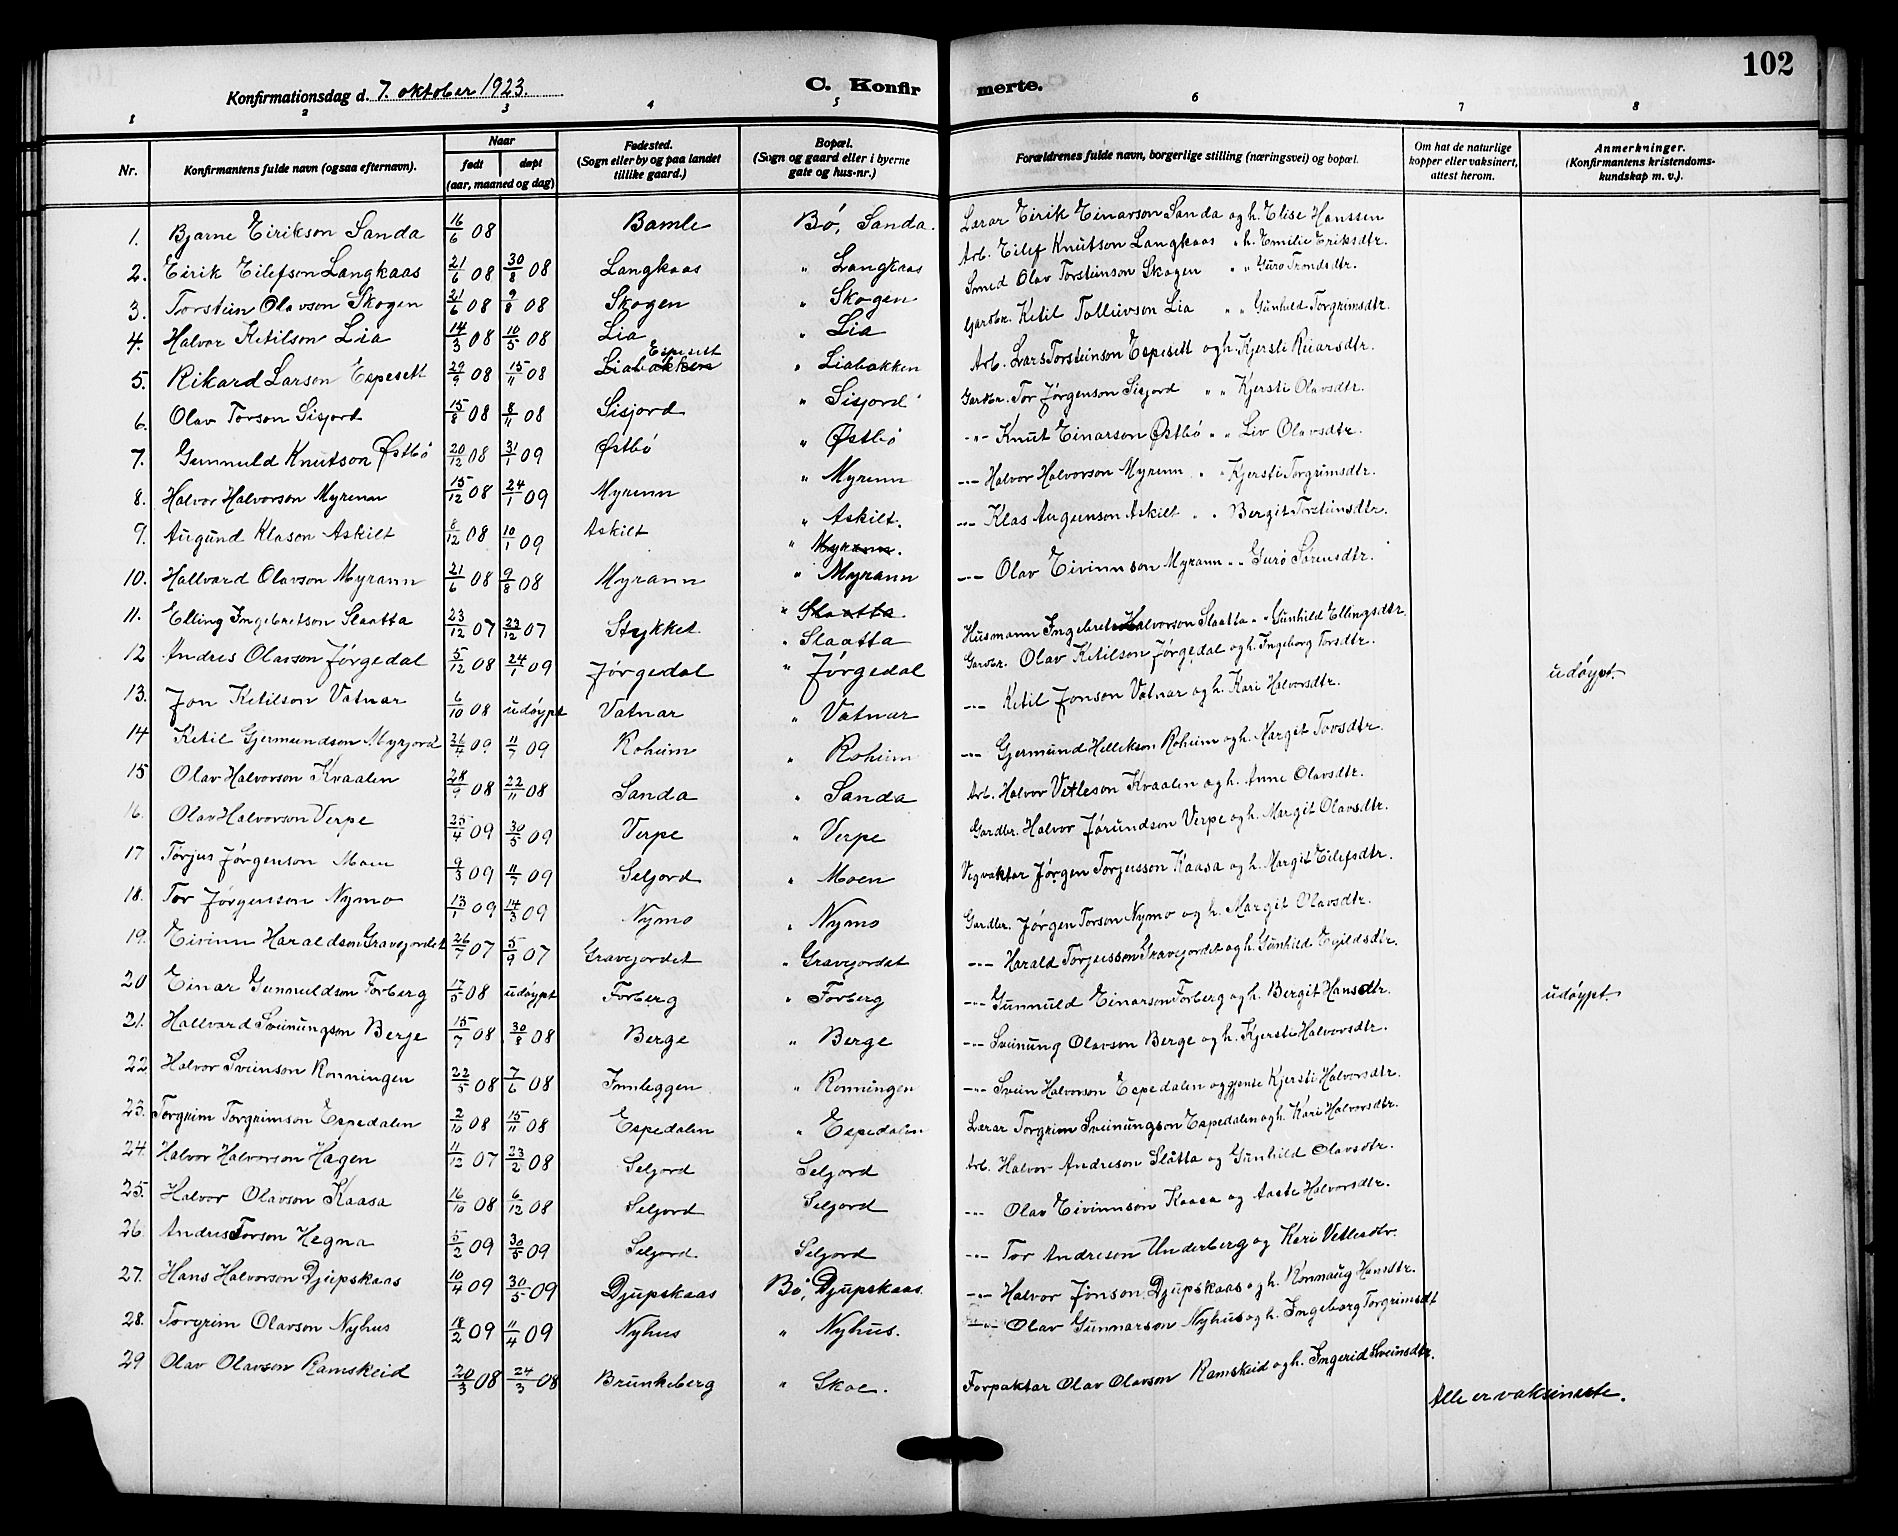 102
Konfirmationsdag d. 7. oktober 1923.
C. Konfirmerte.
1 2 3 4 5 6 7 8
Nr. Konfirmantens fulde navn (ogsaa efternavn). Naar født døpt (aar, maaned og dag) Fødested. (Sogn eller by og paa landet tillike gaard.) Bopæl. (Sogn og gaard eller i byerne gate og hus-nr.) Forældrenes fulde navn, borgerlige stilling (næringsvei) og bopæl. Om hat de naturlige kopper eller vaksinert, attest herom. Anmerkninger. (Konfirmantens kristendoms-kundskap m. v.).
1. Bjarne Eirikson Sanda 16/6 08 Bamle Bó, Sanda. Lærar Eirik Einarson Sanda og h. Elise Hanssen
2. Eirik Eilefson Langkaas 21/6 08 30/8 08 Langkaas " Langkaas Arb. Eilef Knutson Langkaas " h. Emilie Eriksdtr.
3. Torstein Olavson Skogen 21/6 08 9/8 08 Skogen " Skogen Smed Olav Torsteinson Skogen " " Guro Trondsdtr.
4. Halvor Ketilson Lia 14/3 08 10/5 08 Lia " Lia Gardbr. Ketil Tolleivson Lia " " Gunhild Torgrimsdtr.
5. Rikard Larson Espesett 29/9 08 15/11 08 Liabakken Espesett " Liabakken Arb. Lars Torsteinson Espesett og h. Kjersti Reiarsdtr.
6. Olav Torson Sisjord 15/8 08 8/11 08 Sisjord " Sisjord Gardbr. Tor Jørgenson Sisjord " " Kjersti Olavsdtr.
7. Gunnuld Knutson Østbó 20/12 08 31/1 09 Østbó " Østbó -"- Knut Einarson Østbó " " Liv Olavsdtr.
8. Halvor Halvorson Myrenn 15/12 08 24/1 09 Myrenn " Myrenn -"- Halvor Halvorson Myrenn " " Kjersti Torgrimsdtr.
9. Augund Klason Askilt 8/12 08 10/1 09 Askilt " Askilt. -"- Klas Augunson Askilt " " Bergit Torsteinsdtr.
" Myrann.
10. Hallvard Olavson Myrann 21/6 08 9/8 08 Myrann " Myrann -"- Olav Eivinnson Myrann " " Guro Sørensdtr.
" Slaatta
11. Elling Ingebretson Slaatta 23/12 07 23/12 07 Stykket " Slaatta Husmann Ingebret Halvorson Slaatta " " Gunhild Ellingsdtr.
12 Andres Olavson Jórgedal 5/12 08 24/1 09 Jórgedal " Jórgedal Gardbr. Olav Ketilson Jórgedal og h. Ingeborg Torsdtr.
13. Jon Ketilson Vatnar 6/10 08 udóypt Vatnar " Vatnar -"- Ketil Jonson Vatnar og h. Kari Halvorsdtr. udóypt.
14 Ketil Gjermundson Myrjord 26/4 09 11/7 09 Roheim " Roheim -"- Gjermund Hellekson Roheim og h. Margit Tovsdtr.
15 Olav Halvorson Kvaalen 28/9 08 22/11 08 Sanda " Sanda Arb. Halvor Vetleson Kvaalen og h. Anne Olavsdtr.
16. Olav Halvorson Verpe 25/4 09 30/5 09 Verpe " Verpe Gardbr. Halvor Jórundson Verpe og h. Margit Olavsdtr.
17 Torjus Jórgenson Moen 9/3 09 11/7 09 Seljord " Moen Vegvaktar Jórgen Torjusson Kaasa og h. Margit Eilefsdtr.
18. Tor Jórgenson Nymo 13/1 09 14/3 09 Nymo " Nymo Gardbr. Jórgen Torson Nymo og h. Margit Olavsdtr.
19. Eivinn Haraldson Gravejordet 26/7 07 5/9 07 Gravejordet " Gravejordet -"- Harald Torjusson Gravejordet og h. Gunhild Egildsdtr.
20 Einar Gunnuldson Forberg 17/5 08 udóypt Forberg " Forberg -"- Gunnuld Einarson Forberg og h. Bergit Hansdtr. udóypt.
21. Hallvard Sveinungson Berge 15/7 08 30/8 08 Berge " Berge -"- Sveinung Olavson Berge og h. Kjersti Halvorsdtr.
22 Halvor Sveinson Ronningen 22/5 08 7/6 08 Innleggen " Ronningen -"- Svein Halvorson Espedalen og gjente Kjersti Halvorsdtr.
23. Torgrim Torgrimson Espedalen 2/10 08 15/11 08 Espedalen " Espedalen Lærar Torgrim Sveinungson Espedalen og h. Kari Halvorsdtr.
24. Halvor Halvorson Hagen 11/12 07 23/2 08 Seljord Seljord Arb. Halvor Andreson Slåtta og Gunhild Olavsdtr.
25. Halvor Olavson Kaasa 16/10 08 6/12 08 Seljord Seljord -"- Olav Eivinnson Kaasa og Aaste Halvorsdtr.
26. Andres Torson Hegna 5/2 09 30/5 09 Seljord. Seljord -"- Tor Andreson Underberg og Kari Vetlesdtr.
27. Hans Halvorson Djupskaas 10/4 09 30/5 09 Djupskaas Bó, Djupskaas. -"- Halvor Jonson Djupskaas og h. Ronnaug Hansdtr.
28. Torgrim Olavson Nyhus 18/2 09 11/4 09 Nyhus " Nyhus. -"- Olav Gunnarson Nyhus og h. Ingeborg Torgrimsdt
29 Olav Olavson Ramskeid 20/3 08 24/3 08 Brunkeberg " Skoe. Forpaktar Olav Olavson Ramskeid og h. Ingerid Sveinsdtr.
Alle er vaksinerte.